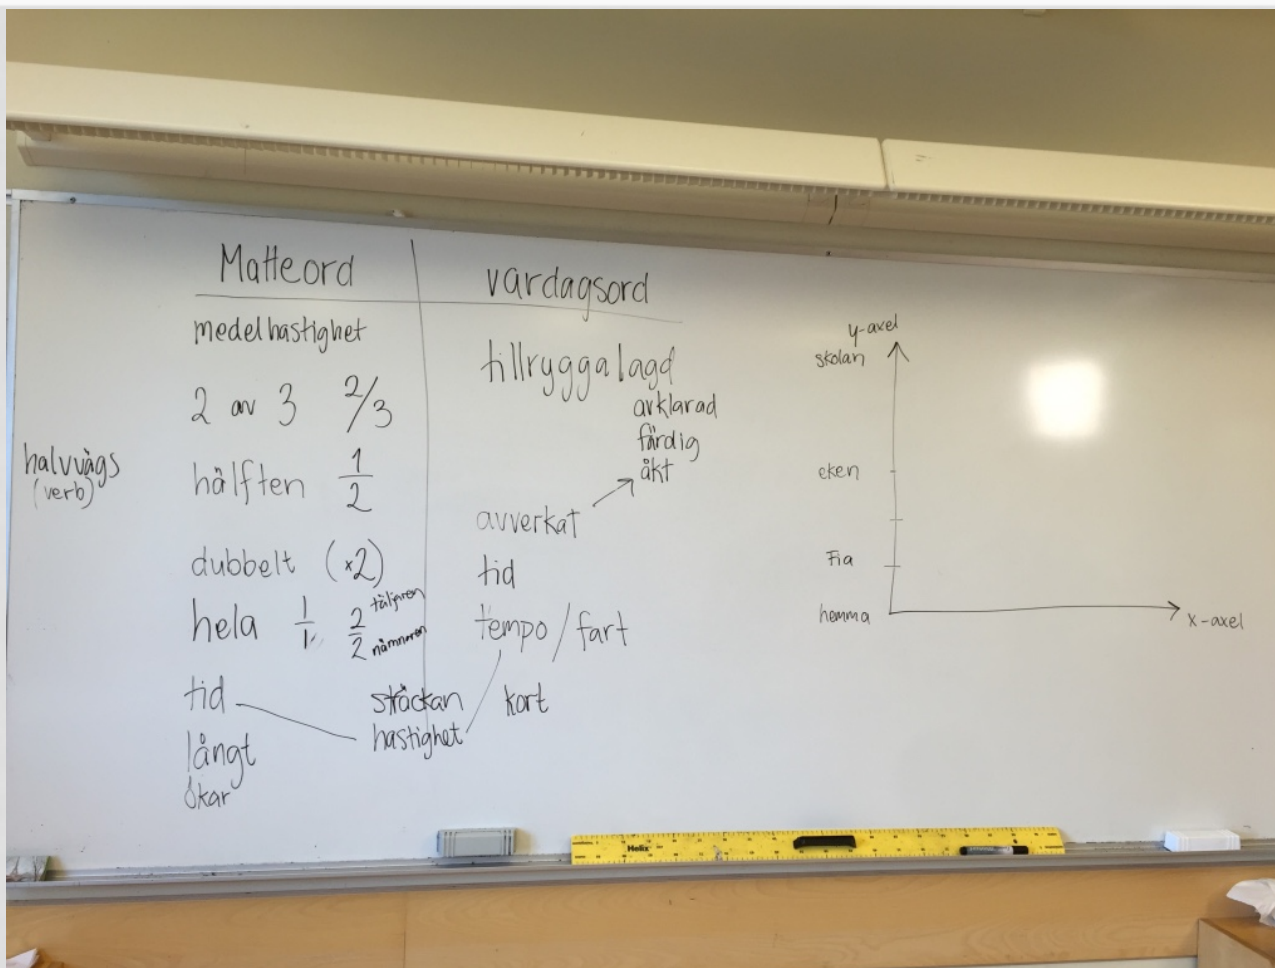 Matteord
vardagsord
medelhastighet
2 av 3 2/3
halvvägs
(verb)
hälften 1/2
dubbelt (×2)
hela 1/1 2/2 täljaren
nämnaren
tid
långt
ökar
sträckan
hastighet
tillryggalagd
avklarad
färdig
åkt
avverkat
tid
tempo / fart
kort
y-axel
skolan
eken
Fia
hemma
x-axel
Helix